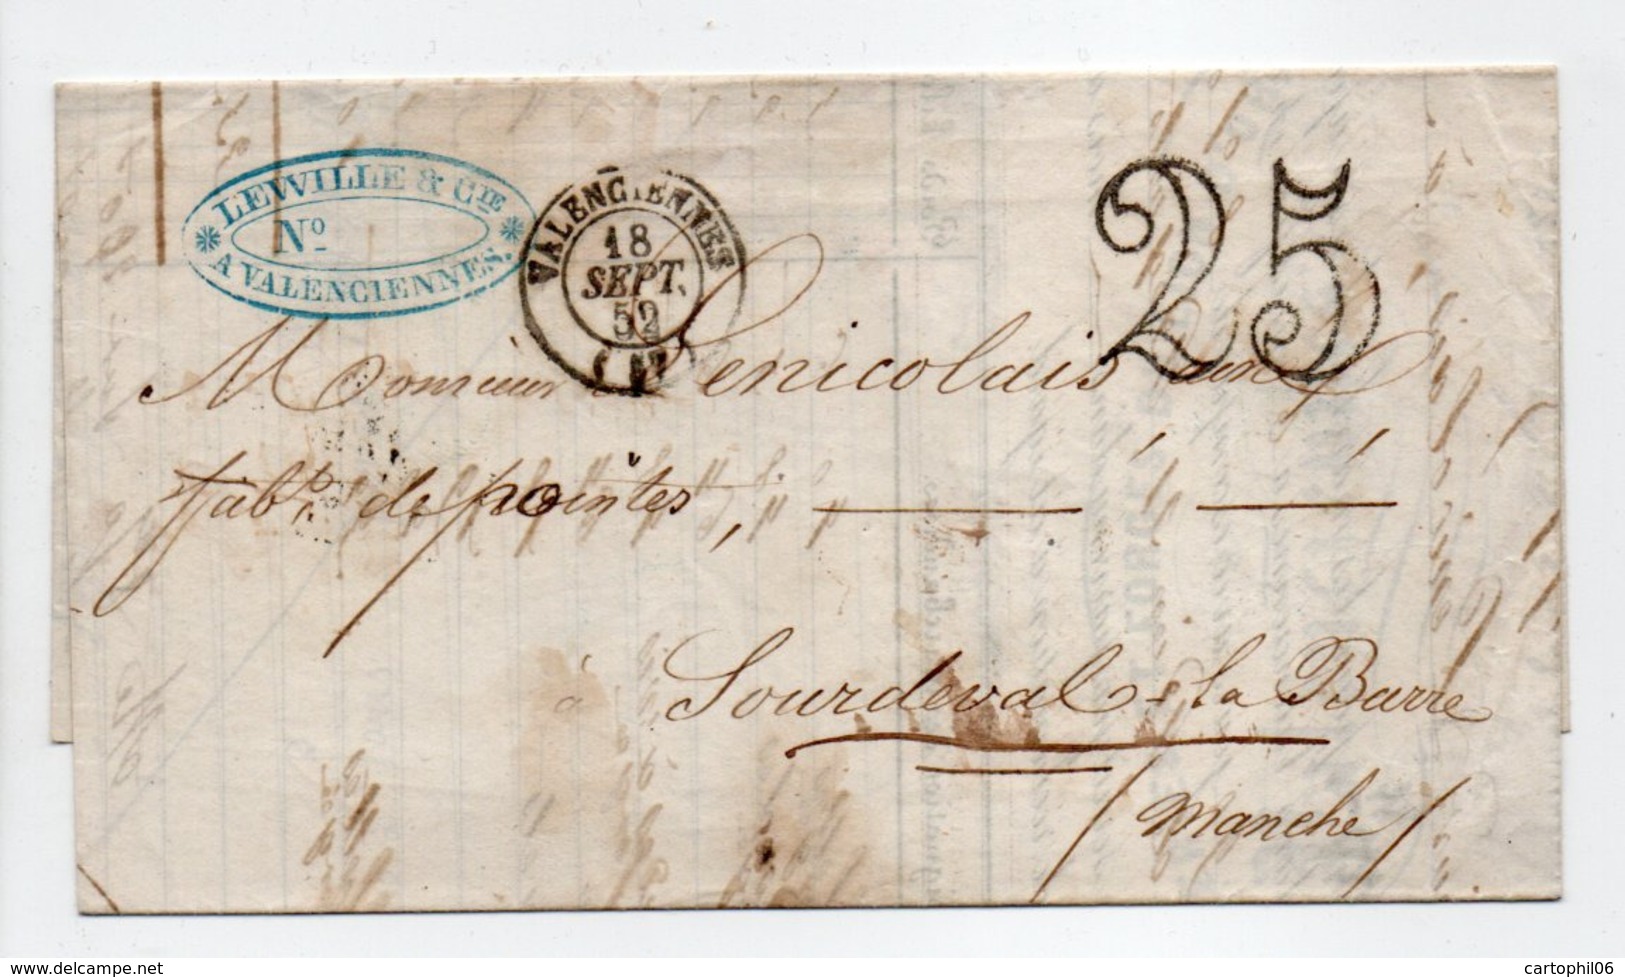 LEWILLE & CIE
No
A VALENCIENNES.
VALENCIENNES
18
SEPT.
52
25
Monsieur Lenicolais ainé
fabt. de pointes,
à Sourdeval-la Barre
/ Manche /
delcampe.net
cartophil06